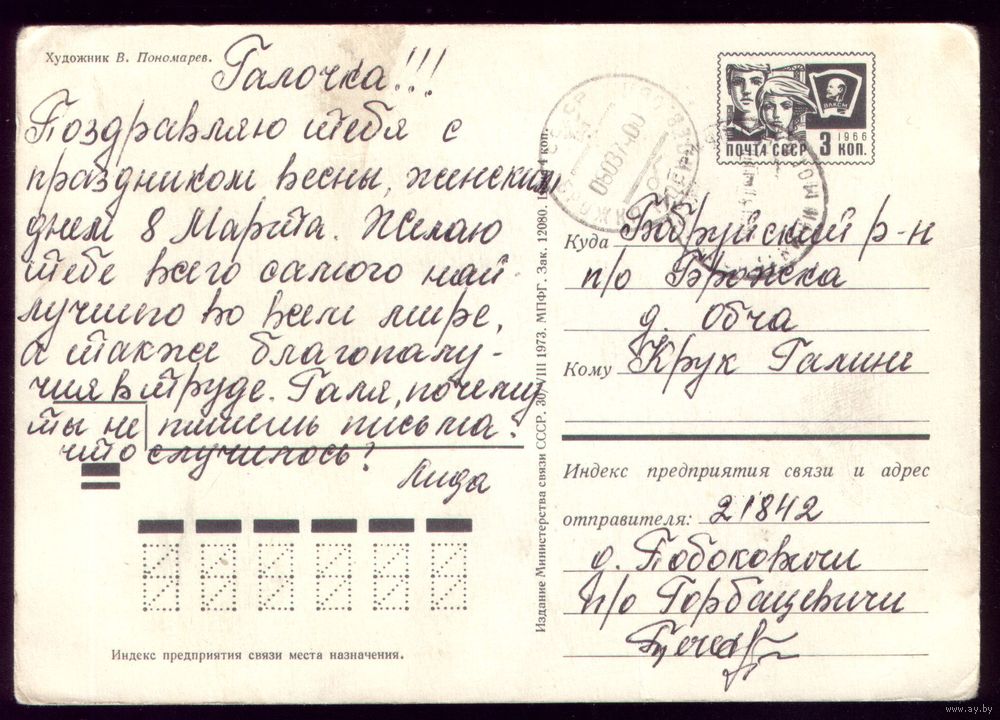 Художник В. Пономарев.
Галочка!!!
Поздравляю тебя с
праздником весны, женским
днем 8 Марта. Желаю
тебе всего самого най-
лучшего во всем мире,
а также благополу-
чия в труде. Галя, почему
ты не пишешь письма?
что случилось?
Лида
Индекс предприятия связи места назначения.
Издание Министерства связи СССР. 30/VIII 1973. МПФГ. Зак. 12080. Цена 4 коп.
ВЛКСМ
1966
ПОЧТА СССР 3 КОП.
Куда Бобруйский р-н
п/о Брожка
д. Обча
Кому Крук Галине
Индекс предприятия связи и адрес
отправителя: 21842
д. Побоковичи
п/о Горбацевичи
www.ay.by